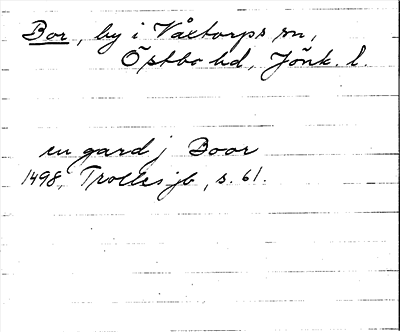 Bor, by i Våxtorps sn,
Östbo hd, Jönk. l.
en gard j Boor
1498, Trolles jb, s. 61.